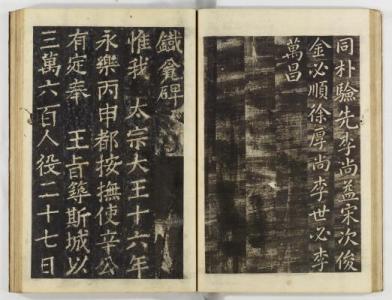 同朴驗先李尚益宋次俊
金必順徐厚尚李世必李
萬昌
鐵瓮碑
惟我 太宗大王十六年
永樂丙申都按撫使辛公
有定奉 王旨築斯城以
三萬六百人役二十七日